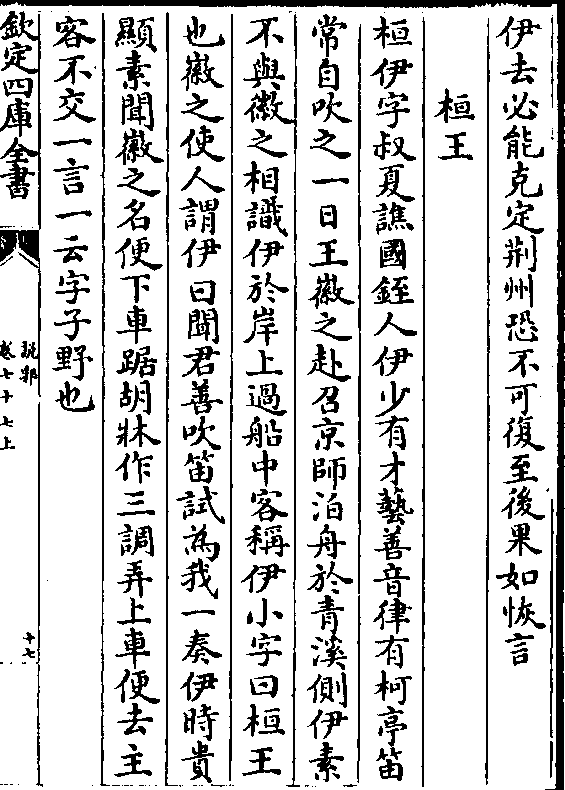 伊去必能克定荆州恐不可復至後果如恢言
桓王
桓伊字叔夏譙國銍人伊少有才藝善音律有柯亭笛
常自吹之一日王徽之赴召京師泊舟於青溪側伊素
不與徽之相識伊於岸上過船中客稱伊小字曰桓王
也徽之使人謂伊曰聞君善吹笛試為我一奏伊時貴
顯素聞徽之名便下車踞胡牀作三調弄上車便去主
客不交一言一云字子野也
欽定四庫全書
說郛
卷七十七上
十七